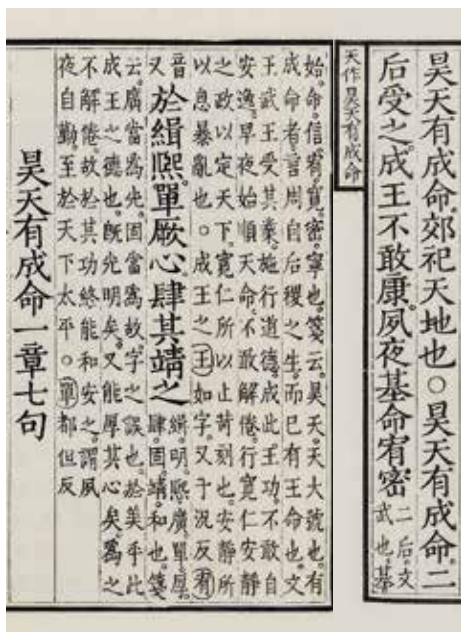 昊天有成命。郊祀天地也〇昊天有成命。二
后受之。成王不敢康。夙夜基命宥密
二后。文
武也。基
天作 昊天有成命
始。命。信。宥。寬。密。寧也。箋云。昊天。天大號也。有
成命者。言周自后稷之生。而已有王命也。文
王。武王受其業。施行道德。成此王功。不敢自
安逸。早夜始順天命。不敢解倦。行寬仁安靜
之政以定天下。寬仁所以止苛刻也。安靜所
以息暴亂也〇成王之王如字。又于況反宥
音
又
於緝熙。單厥心肆其靖之
緝。明。熙。廣。單。厚。
肆。固。靖。和也。箋
云。廣當爲光。固當爲故。字之誤也。於美乎。此
成王之德也。既光明矣。又能厚其心矣。爲之
不解倦。故於其功終能和安之。謂夙
夜自勤。至於天下太平〇單都但反
昊天有成命一章七句